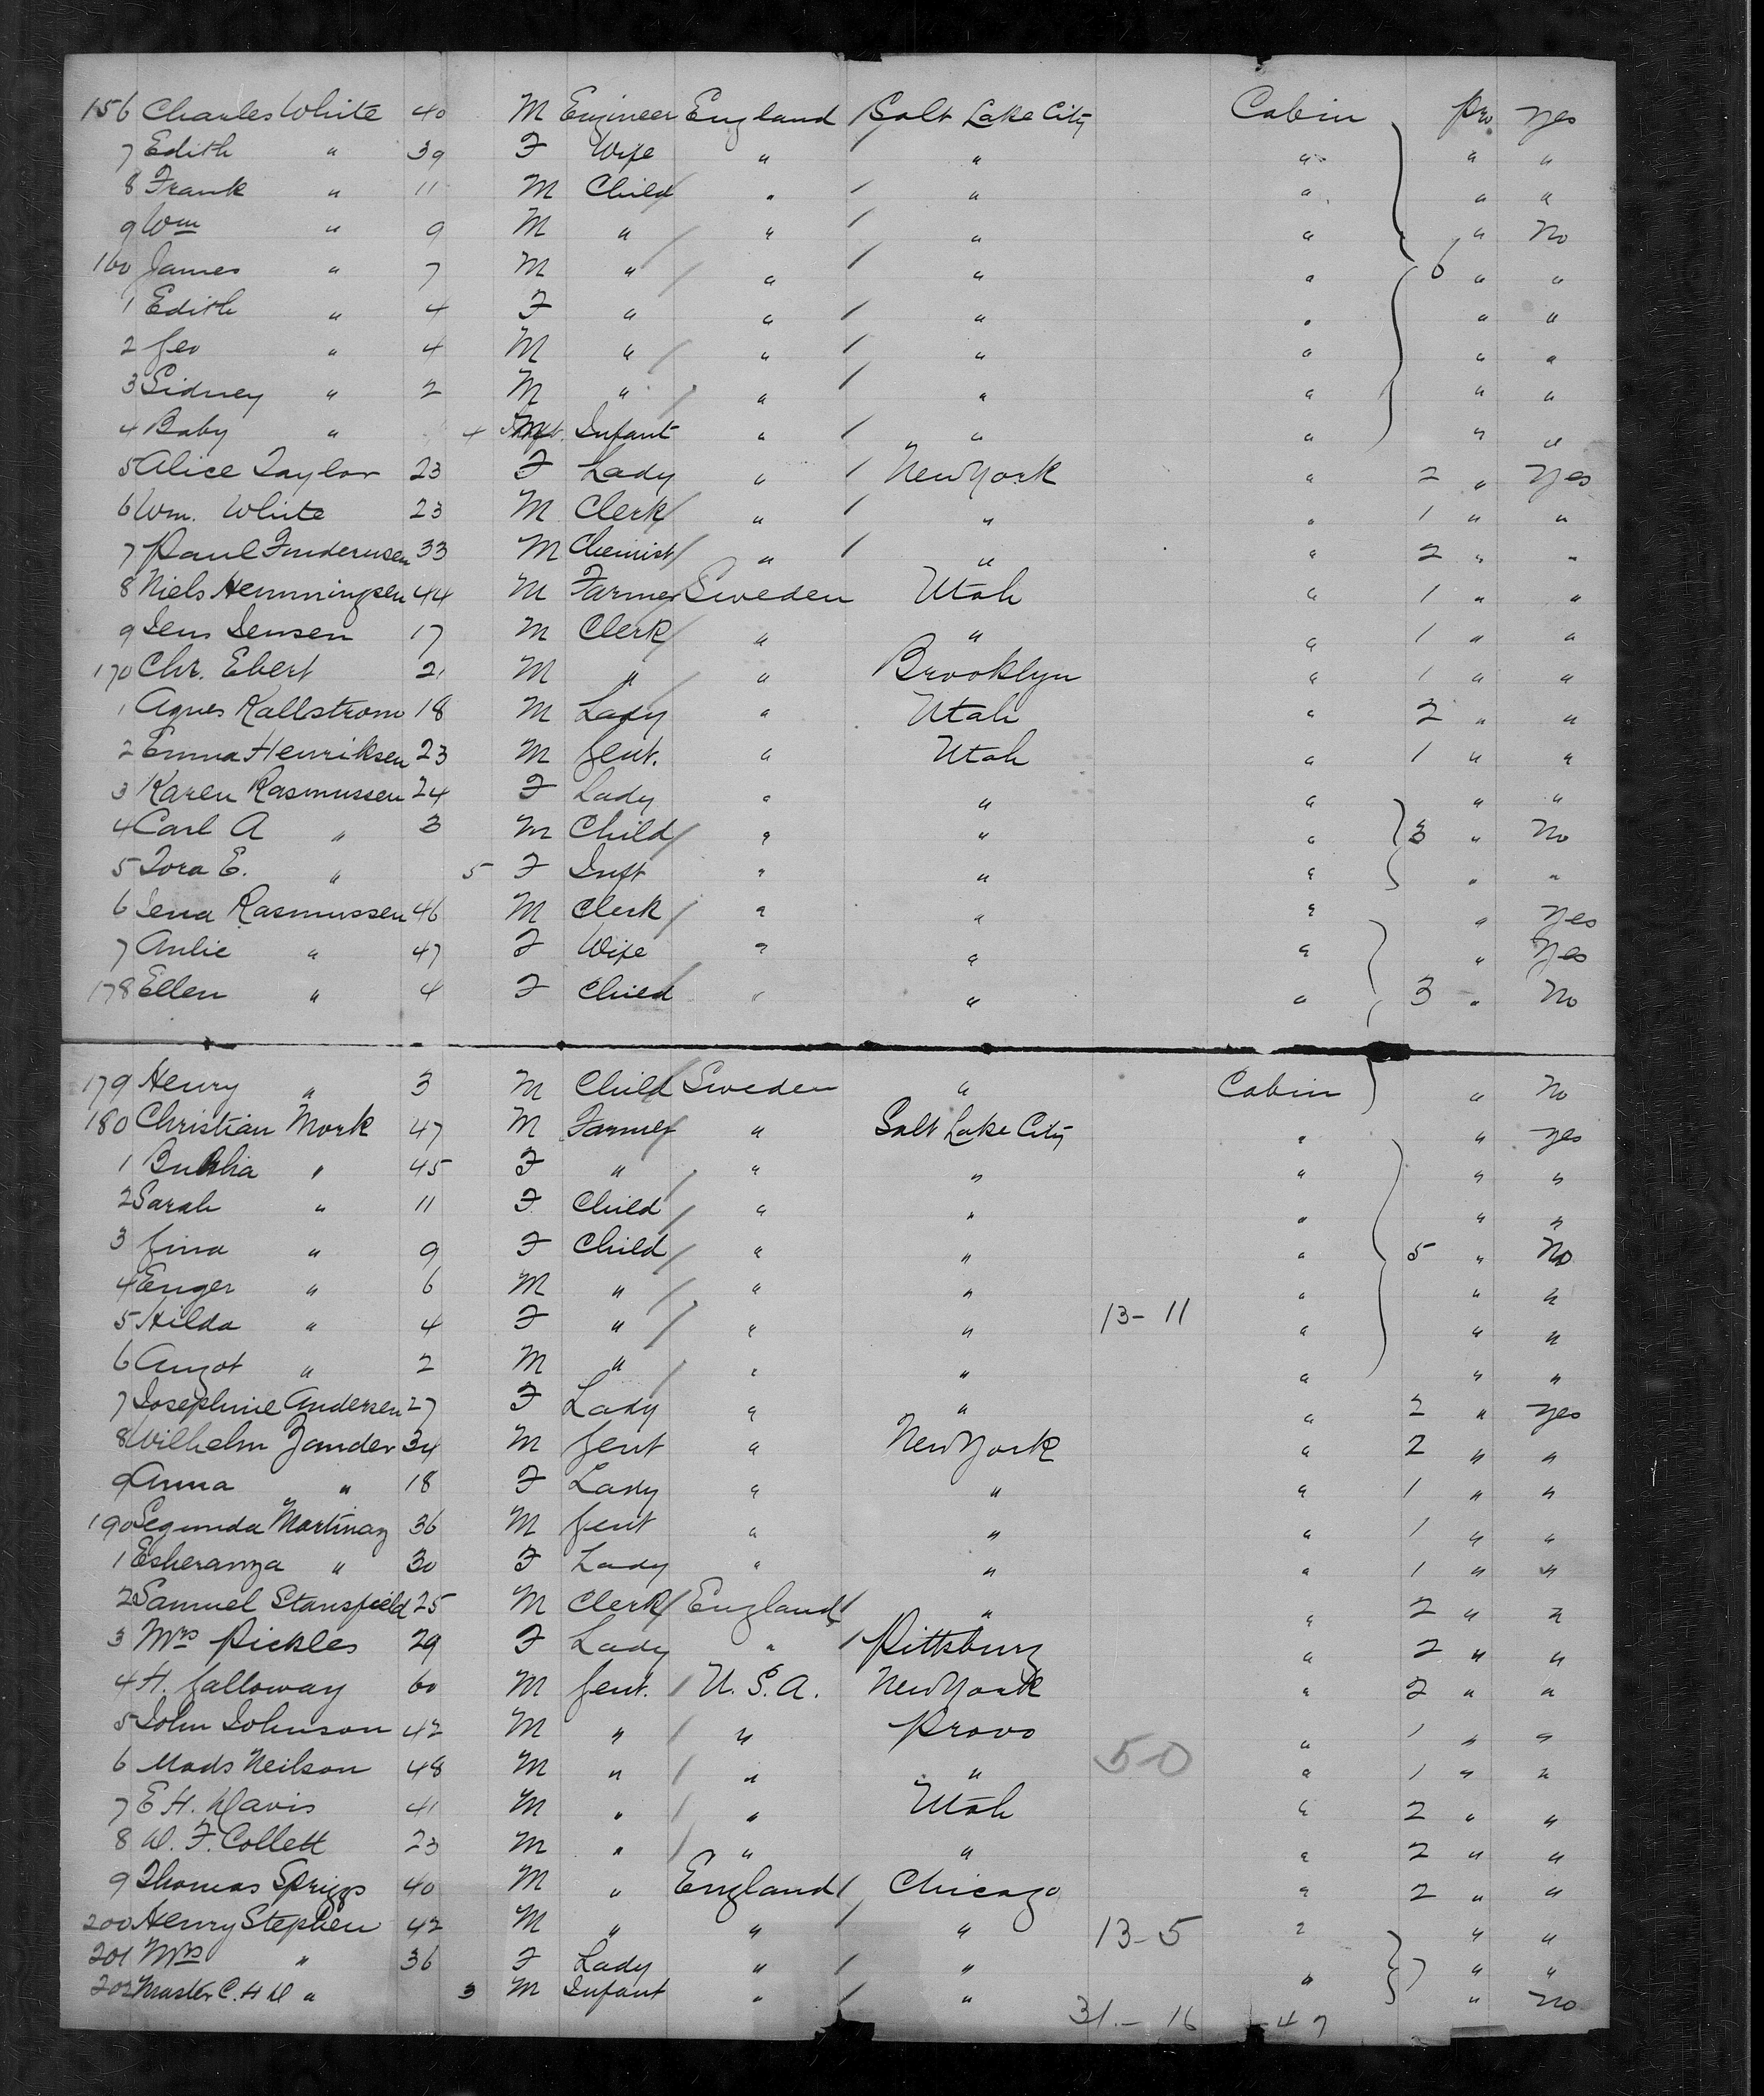 156 Charles White 40 M Engineer England Salt Lake City Cabin pro yes
7 Edith " 39 F Wife " " " " "
8 Frank " 11 M Child " " " " "
9 Wm " 9 M " " " " " No
160 James " 7 M " " " " 6 " "
1 Edith " 4 F " " " " " "
2 Geo " 4 M " " " " " "
3 Sidney " 2 M " " " " " "
4 Baby " 4 Infant " " " " "
5 Alice Taylor 23 F Lady " New York " 2 " yes
6 Wm. White 23 M Clerk " " " 1 " "
7 Paul 33 M Chemist " " " 2 " "
8 Niels Hemmingsen 44 M Farmer Sweden Utah " 1 " "
9 Jens Jensen 17 M Clerk " " " 1 " "
170 Chr. Ebert 21 M " " Brooklyn " 1 " "
1 Agnes Kallstrom 18 M Lady " Utah " 2 " "
2 Emma Henriksen 23 M Gent. " Utah " 1 " "
3 Karen Rasmussen 24 F Lady " " " " "
4 Carl A " 3 M Child " " " 3 " No
5 Tora E. " 5 F Inft " " " " "
6 Jens Rasmussen 46 M Clerk " " " " yes
7 Anlie " 47 F Wife " " " " yes
178 Ellen " 4 F Child " " " 3 " No
179 Henry " 3 M Child Sweden " Cabin " No
180 Christian Mork 47 M Farmer " Salt Lake City " " yes
1 " 45 F " " " " " "
2 Sarah " 11 F Child " " " " "
3 Gina " 9 F Child " " " 5 " No
4 Enger " 6 M " " " " " "
5 Hilda " 4 F " " " 13-11 " " "
6 " 2 M " " " " " "
7 Josephine Andersen 27 F Lady " " " 2 " yes
8 Wilhelm Zander 34 M Gent " New York " 2 " "
9 Anna " 18 F Lady " " " 1 " "
190 Segunda Martinaz 36 M Gent " " " 1 " "
1 Esheranza " 30 F Lady " " " 1 " "
2 Samuel Stansfield 25 M Clerk England " " 2 " "
3 Mrs Pickles 29 F Lady " Pittsburg " 2 " "
4 H. Galloway 60 M Gent. U.S.A. New York " 2 " "
5 John Johnson 42 M " " Provo " 1 " "
6 Mads Neilson 48 M " " " 50 " 1 " "
7 E H. Davis 41 M " " Utah " 2 " "
8 D. F. Collett 23 M " " " " 2 " "
9 Thomas Spriggs 40 M " England Chicago " 2 " "
200 Henry Stephen 42 M " " " 13-5 " " "
201 Mrs " 36 F Lady " " " "
202 Master C. H D " 3 M Infant " " " " No
31-16 47